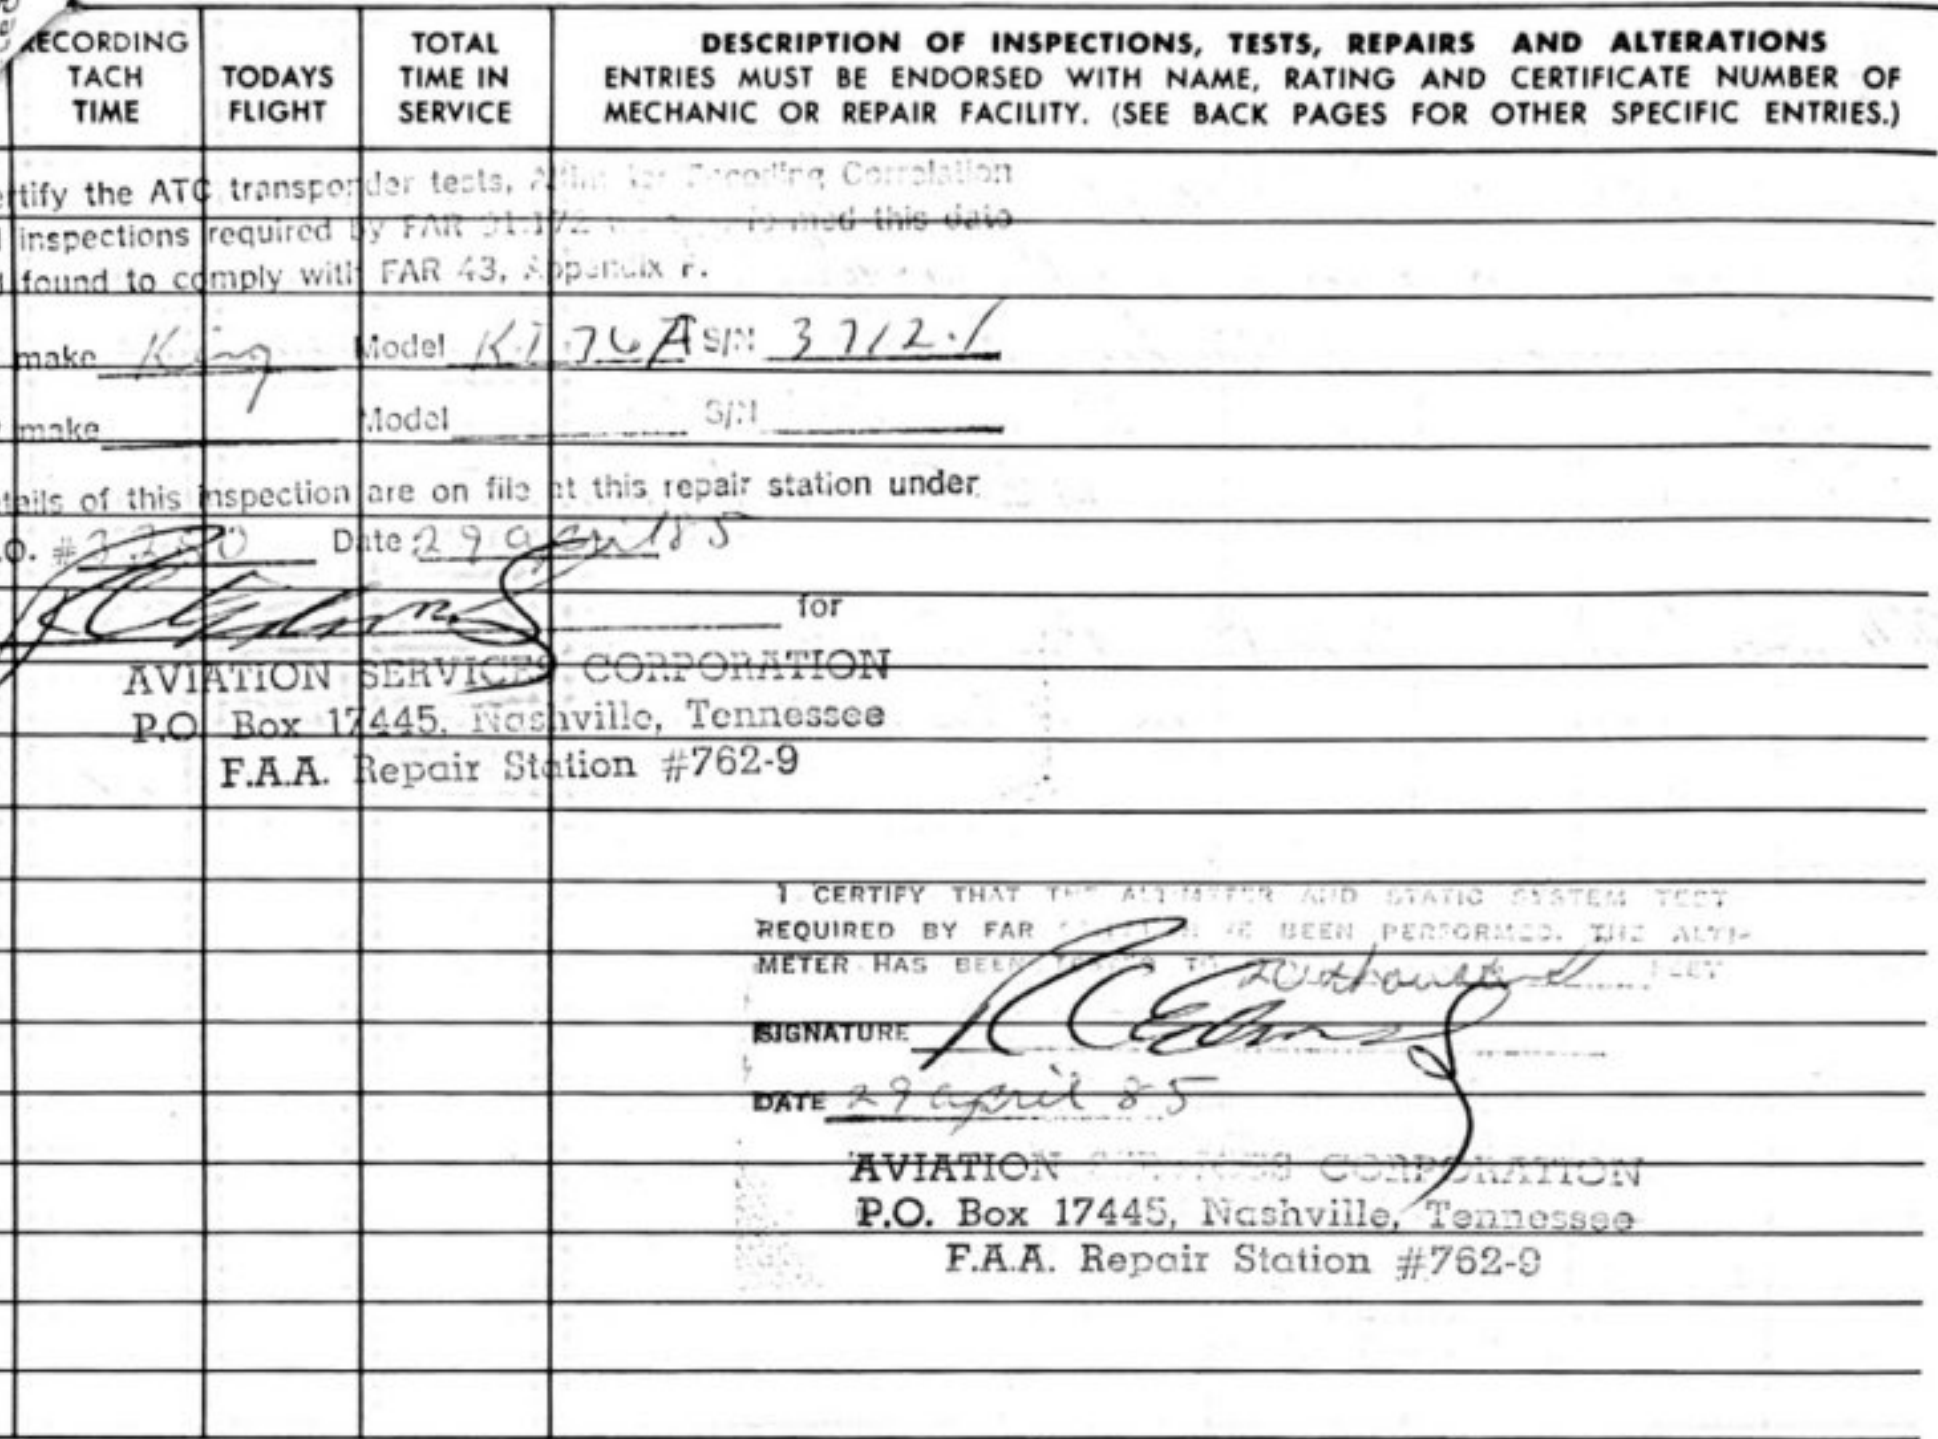 RECORDING TACH TIME
TODAYS FLIGHT
TOTAL TIME IN SERVICE
DESCRIPTION OF INSPECTIONS, TESTS, REPAIRS AND ALTERATIONS
ENTRIES MUST BE ENDORSED WITH NAME, RATING AND CERTIFICATE NUMBER OF
MECHANIC OR REPAIR FACILITY. (SEE BACK PAGES FOR OTHER SPECIFIC ENTRIES.)
tify the ATC transponder tests, Encoding Correlation
inspections required by FAR this date
found to comply with FAR 43, Appendix F.
make King Model KT 76A S/N
make Model S/N
tails of this inspection are on file at this repair station under
O. # Date 29 april 85
for
AVIATION SERVICES CORPORATION
P.O. Box 17445, Nashville, Tennessee
F.A.A. Repair Station #762-9
I CERTIFY THAT THE ALTIMETER AND STATIC SYSTEM TEST
REQUIRED BY FAR BEEN PERFORMED. THE ALTI-
METER HAS BEEN TESTED TO thousand FEET
SIGNATURE
DATE 29 april 85
AVIATION SERVICES CORPORATION
P.O. Box 17445, Nashville, Tennessee
F.A.A. Repair Station #762-9